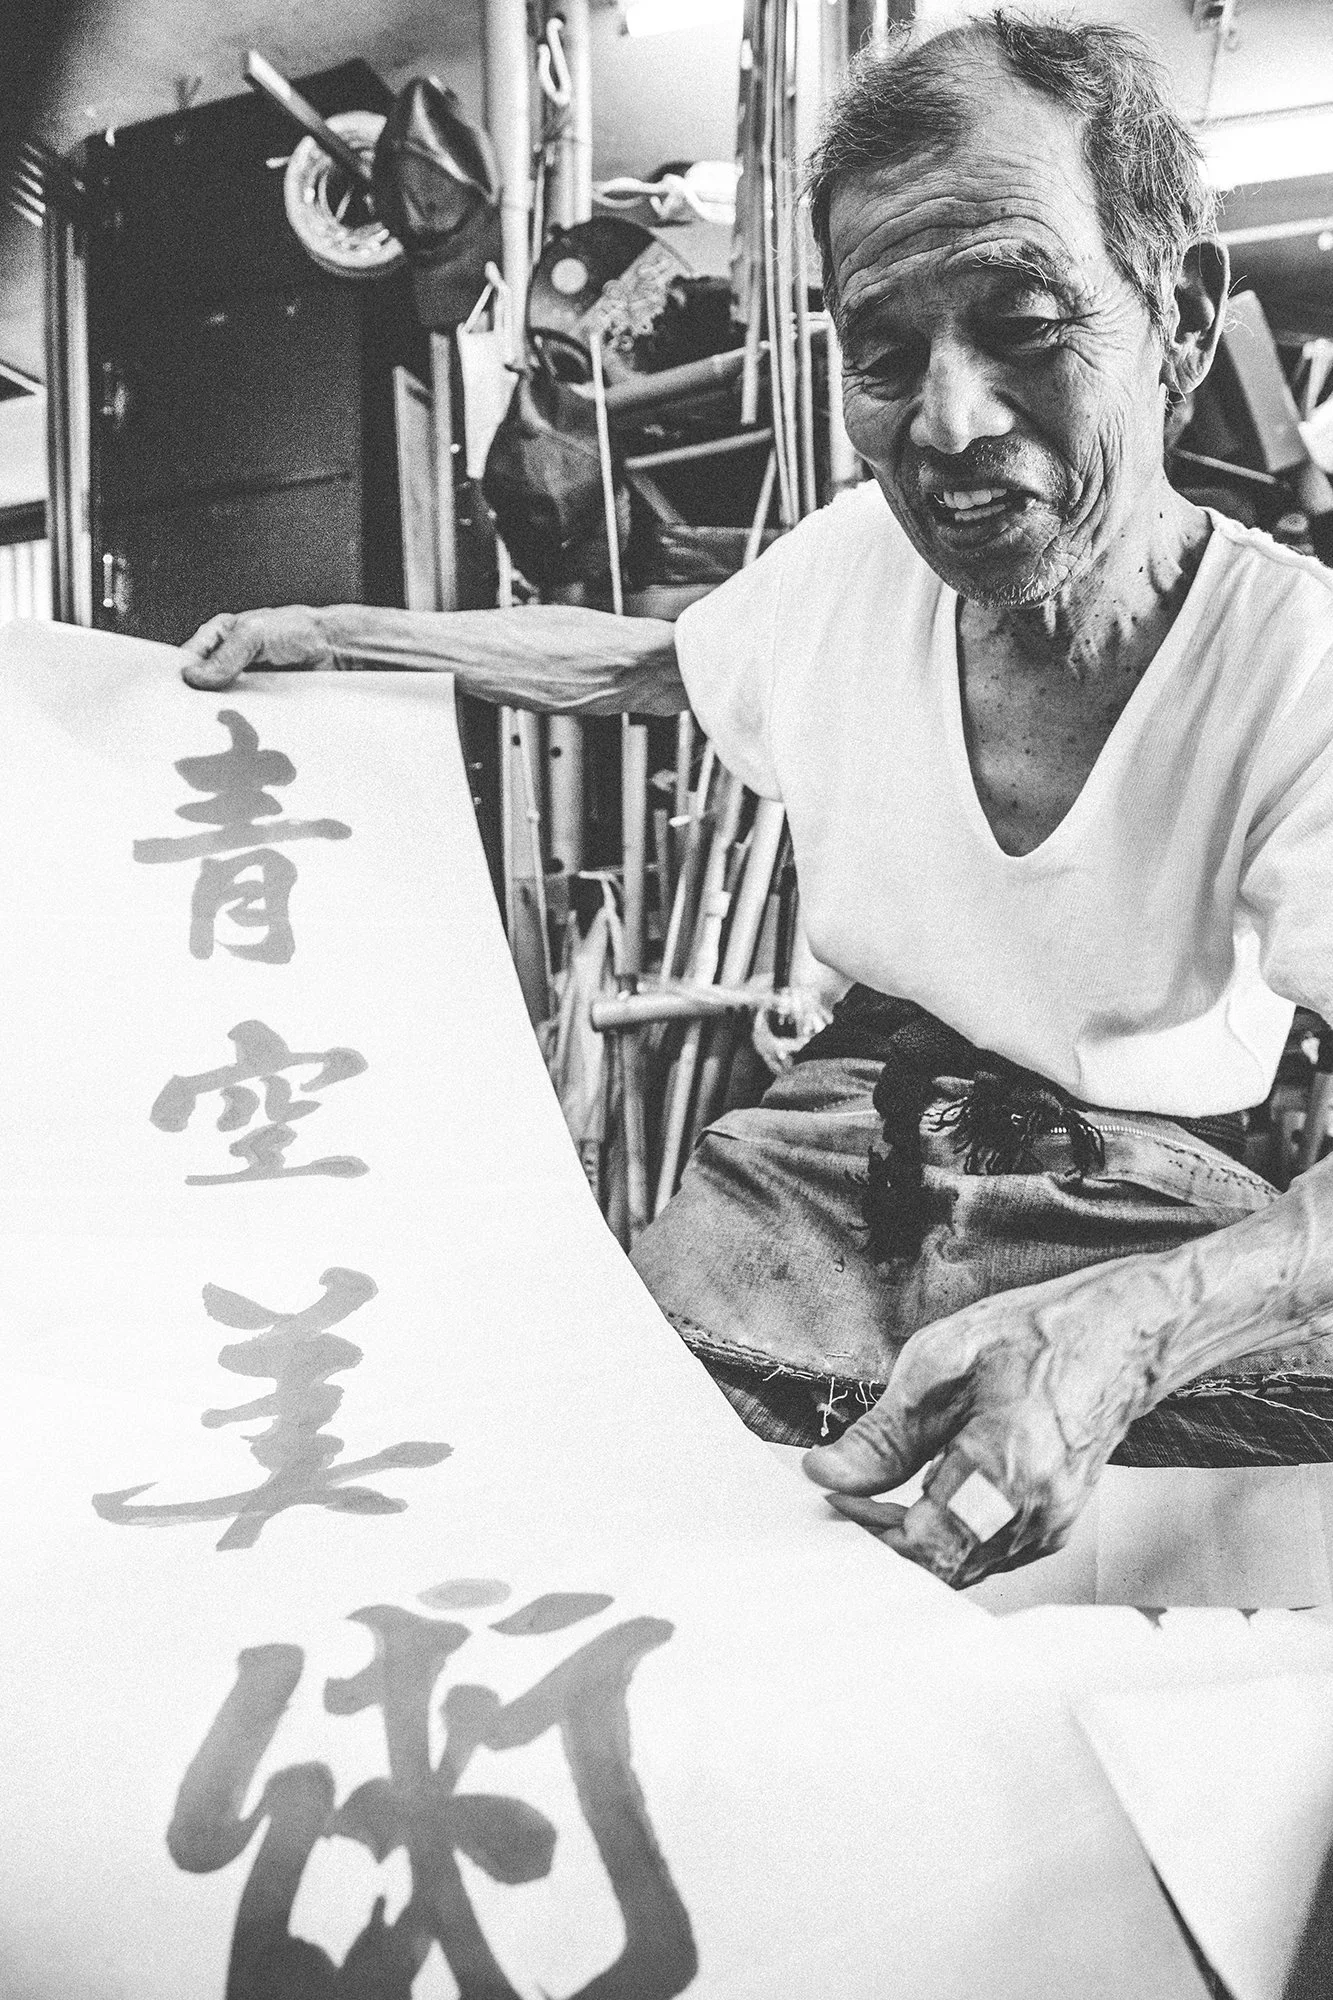 青空美術